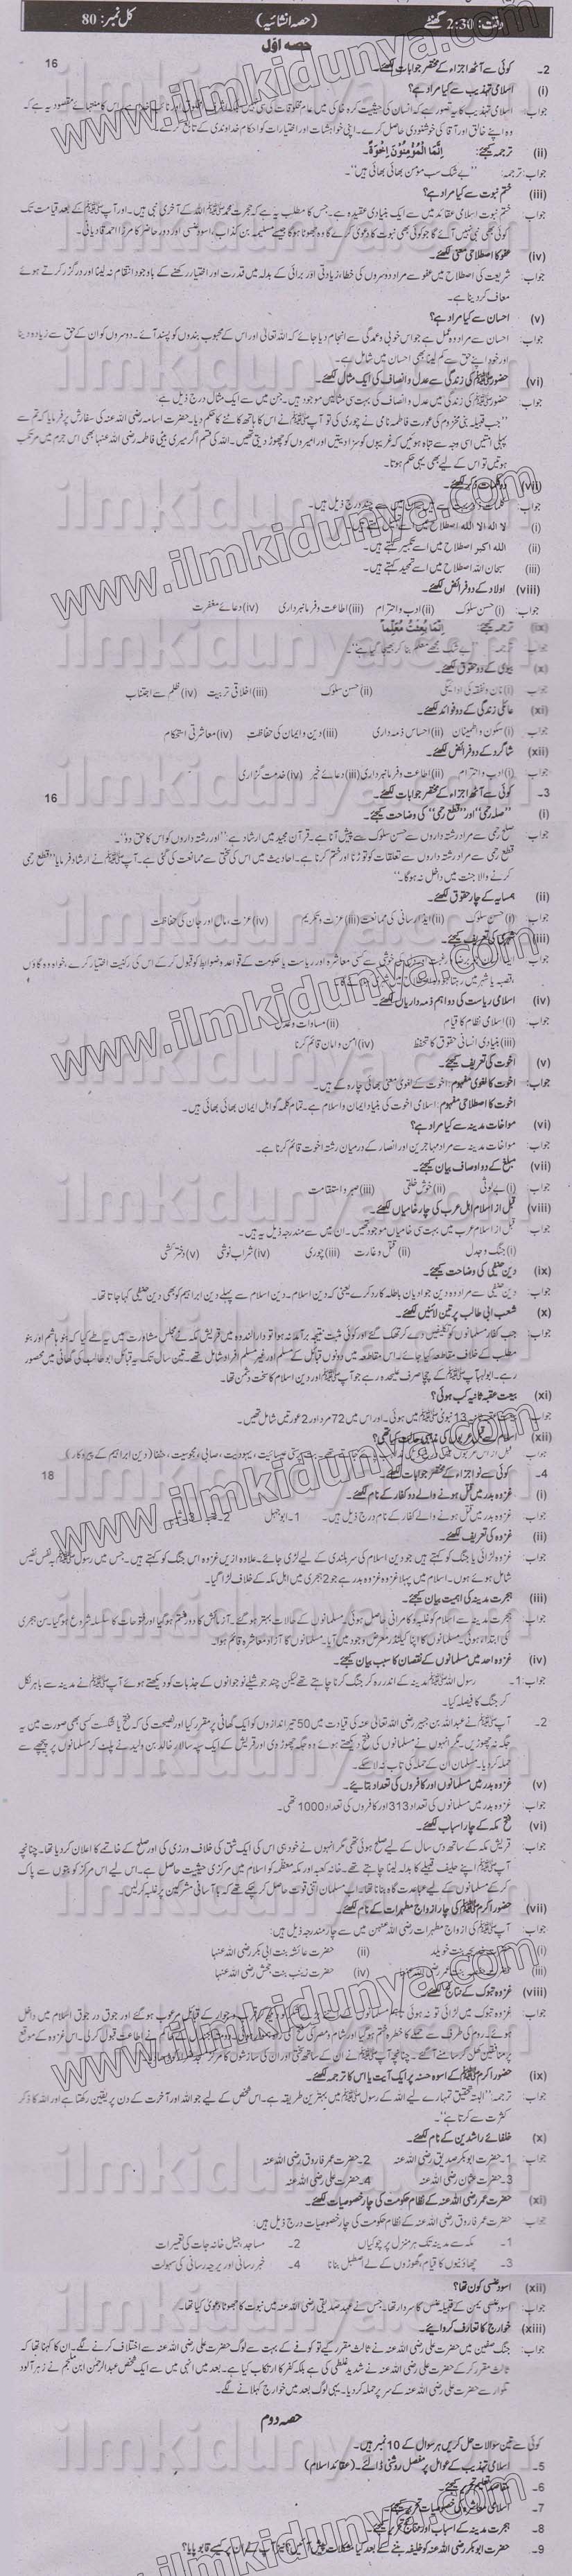 وقت: 2:30 گھنٹے (حصہ انشائیہ) کل نمبر: 80
حصہ اوّل
2۔ کوئی سے آٹھ اجزاء کے مختصر جوابات لکھئے۔ 16
(i) اسلامی تہذیب سے کیا مراد ہے؟
(ii) ترجمہ کیجئے: اِنَّمَا الْمُؤْمِنُوْنَ اِخْوَةٌ۔
جواب: ترجمہ: "بے شک سب مومن بھائی بھائی ہیں"۔
(iii) ختم نبوت سے کیا مراد ہے؟
جواب: ختم نبوت اسلامی عقائد میں سے ایک بنیادی عقیدہ ہے۔ جس کا مطلب یہ ہے کہ حضرت محمدﷺ اللہ کے آخری نبی ہیں۔ اور آپﷺ کے بعد قیامت تک
کوئی بھی نبی نہیں آئے گا جو کوئی بھی نبوت کا دعویٰ کرے گا وہ جھوٹا ہوگا جیسے مسلیمہ بن کذاب، اسود عنسی اور دور حاضر کا مرزا احمد قادیانی۔
(iv) عفو کا اصطلاحی معنی لکھئے۔
جواب: شریعت کی اصطلاح میں عفو سے مراد دوسروں کی خطا، زیادتی اور برائی کے بدلہ میں قدرت اور اختیار رکھنے کے باوجود انتقام نہ لینا اور درگزر کرتے ہوئے
معاف کر دینا ہے۔
(v) احسان سے کیا مراد ہے؟
جواب: احسان سے مراد وہ عمل ہے جو اس خوبی و عمدگی سے انجام دیا جائے کہ اللہ تعالیٰ اور اس کے محبوب بندوں کو پسند آئے۔ دوسروں کو ان کے حق سے زیادہ دینا
اور خود اپنے حق سے کم لینا بھی احسان میں شامل ہے۔
(vi) حضورﷺ کی زندگی سے عدل و انصاف کی ایک مثال لکھئے۔
جواب: حضورﷺ کی زندگی میں عدل و انصاف کی بہت سی مثالیں موجود ہیں۔ جن میں سے ایک مثال درج ذیل ہے:
"جب قبیلہ بنی مخزوم کی عورت فاطمہ نامی نے چوری کی تو آپﷺ نے اس کا ہاتھ کاٹنے کا حکم دیا۔ حضرت اسامہ رضی اللہ عنہ کی سفارش پر فرمایا کہ تم سے
پہلی امتیں اسی وجہ سے تباہ ہوئیں کہ غریبوں کو سزا دیتیں اور امیروں کو چھوڑ دیتی تھیں۔ اللہ کی قسم اگر میری بیٹی فاطمہ رضی اللہ عنہا بھی اس جرم میں مرتکب
ہوتیں تو اس کے لیے بھی یہی حکم ہوتا۔
(vii) دو کلمات ذکر لکھئے۔
(i) لا الہ الا اللہ اصطلاح میں اسے
(ii) اللہ اکبر اصطلاح میں اسے تکبیر کہتے ہیں۔
(iii) سبحان اللہ اصطلاح میں اسے تمجید کہتے ہیں۔
(viii) اولاد کے دو فرائض لکھئے۔
جواب: (i) حسن سلوک (ii) ادب و احترام (iii) اطاعت و فرمانبرداری (iv) دعائے مغفرت
(ix) ترجمہ کیجئے: اِنَّمَا بُعِثْتُ مُعَلِّمًا
جواب: ترجمہ: "بے شک مجھے معلم بنا کر بھیجا گیا ہے"۔
(x) بیوی کے دو حقوق لکھئے۔
جواب: (i) نان و نفقہ کی ادائیگی (ii) حسن سلوک (iii) اخلاقی تربیت (iv) ظلم سے اجتناب
(xi) عائلی زندگی کے دو فوائد لکھئے۔
جواب: (i) سکون و اطمینان (ii) احساس ذمہ داری (iii) دین و ایمان کی حفاظت (iv) معاشرتی استحکام
(xii) شاگرد کے دو فرائض لکھئے۔
جواب: (i) ادب و احترام (ii) اطاعت و فرمانبرداری (iii) دعائے خیر (iv) خدمت گزاری
3۔ کوئی سے آٹھ اجزاء کے مختصر جوابات لکھئے۔ 16
(i) "صلہ رحمی" اور "قطع رحمی" کی وضاحت کیجئے۔
جواب: صلح رحمی سے مراد رشتہ داروں سے حسن سلوک سے پیش آنا ہے۔ قرآن مجید میں ارشاد ہے: "اور رشتہ داروں کو اس کا حق دو"۔
قطع رحمی سے مراد رشتہ داروں سے تعلقات کو توڑنا اور ختم کرنا ہے۔ احادیث میں اس کی سختی سے ممانعت کی گئی ہے۔ آپﷺ نے ارشاد فرمایا "قطع رحمی
کرنے والا جنت میں داخل نہ ہوگا۔"
(ii) ہمسایہ کے چار حقوق لکھئے۔
جواب: (i) حسن سلوک (ii) ایذا رسانی کی ممانعت (iii) عزت و تکریم (iv) عزت، مال اور جان کی حفاظت
(iii) شہری کی تعریف کیجئے۔
(iv) اسلامی ریاست کی دو اہم ذمہ داریاں لکھئے۔
جواب: (i) اسلامی نظام کا قیام (ii) مساوات و عدل
(iii) بنیادی انسانی حقوق کا تحفظ (iv) امن و امان قائم کرنا
(v) اخوت کی تعریف کیجئے۔
جواب: اخوت کا لغوی مفہوم: اخوت کے لغوی معنی بھائی چارہ کے ہیں۔
اخوت کا اصطلاحی مفہوم: اسلامی اخوت کی بنیاد ایمان و اسلام ہے۔ تمام کلمہ گو اہل ایمان بھائی بھائی ہیں۔
(vi) مواخات مدینہ سے کیا مراد ہے؟
جواب: مواخات مدینہ سے مراد مہاجرین اور انصار کے درمیان رشتہ اخوت قائم کرنا ہے۔
(vii) مبلغ کے دو اوصاف بیان کیجئے۔
جواب: (i) بے لوثی (ii) خوش خلقی (iii) صبر و استقامت
(viii) قبل از اسلام اہل عرب کی چار خامیاں لکھئے۔
جواب: قبل از اسلام عرب میں بہت سی خامیاں موجود تھیں۔ ان میں سے مندرجہ ذیل یہ ہیں۔
(i) جنگ و جدل (ii) قتل و غارت (iii) چوری (iv) شراب نوشی (v) دختر کشی
(ix) دین حنیفی کی وضاحت کیجئے۔
جواب: دین حنیفی سے مراد وہ دین جو ادیان باطلہ کا رد کرے یعنی کہ دین اسلام۔ دین اسلام سے پہلے دین ابراہیم کو بھی دین حنیفی کہا جاتا تھا۔
(x) شعب ابی طالب پر تین لائنیں لکھئے۔
جواب: جب کفار مسلمانوں کو تکلیفیں دے کر تھک گئے اور کوئی مثبت نتیجہ برآمد نہ ہوا تو دارالندوہ میں قریش مکہ نے مجلس مشاورت میں یہ طے کیا کہ بنو ہاشم اور بنو
مطلب کے خلاف مقاطعہ کیا جائے۔ اس مقاطعہ میں دونوں قبائل کے مسلم اور غیر مسلم افراد شامل تھے۔ تین سال تک یہ قبائل ابو طالب کی گھاٹی میں محصور
رہے۔ ابولہب آپﷺ کے چچا صرف علیحدہ رہے جو آپﷺ اور دین اسلام کا سخت دشمن تھا۔
(xi) بیعت عقبہ ثانیہ کب ہوئی؟
13 نبویﷺ میں ہوئی۔ اور اس میں 72 مرد اور 2 عورتیں شامل تھیں۔
(xii) اسلام سے قبل عربوں کی مذہبی حالت کیا تھی؟
4۔ کوئی سے نو اجزاء کے مختصر جوابات لکھئے۔ 18
(i) غزوہ بدر میں قتل ہونے والے دو کفار کے نام لکھئے۔
جواب: غزوہ بدر میں قتل ہونے والے کفار کے نام درج ذیل ہیں۔ 1۔ ابوجہل
(ii) غزوہ کی تعریف لکھئے۔
جواب: غزوہ لڑائی یا جنگ کو کہتے ہیں جو دین اسلام کی سربلندی کے لیے لڑی جائے۔ علاوہ ازیں غزوہ اس جنگ کو کہتے ہیں۔ جس میں رسولﷺ بہ نفس نفیس
شامل ہوئے ہوں۔ اسلام میں پہلا غزوہ غزوہ بدر ہے جو 2 ہجری میں اہل مکہ کے خلاف لڑا گیا۔
(iii) ہجرت مدینہ کی اہمیت بیان کیجئے۔
جواب: ہجرت مدینہ سے اسلام کو غلبہ و کامرانی حاصل ہوئی۔ مسلمانوں کے حالات بہتر ہو گئے۔ آزمائش کا دور ختم ہوگیا اور فتوحات کا سلسلہ شروع ہوگیا۔ سن ہجری
کی ابتداء ہوئی۔ مسلمانوں کا اپنا کیلنڈر معرض وجود میں آیا۔ مسلمانوں کا آزاد معاشرہ قائم ہوا۔
(iv) غزوہ احد میں مسلمانوں کے نقصان کا سبب بیان کیجئے۔
جواب: 1۔ رسول اللہﷺ مدینہ کے اندر رہ کر جنگ کرنا چاہتے تھے لیکن چند جوشیلے نوجوانوں کے جذبات کو دیکھتے ہوئے آپﷺ نے مدینہ سے باہر نکل
کر جنگ کا فیصلہ کیا۔
2۔ آپﷺ نے عبداللہ بن جبیر رضی اللہ تعالیٰ عنہ کی قیادت میں 50 تیر اندازوں کو ایک گھاٹی پر مقرر کیا اور نصیحت کی کہ فتح یا شکست کسی بھی صورت میں یہ
جگہ نہ چھوڑیں۔ مگر انہوں نے مسلمانوں کی فتح دیکھتے ہوئے وہ جگہ چھوڑ دی اور قریش کے ایک سپہ سالار خالد بن ولید نے پلٹ کر مسلمانوں پر پیچھے سے
حملہ کر دیا۔ مسلمان ان کے حملہ کی تاب نہ لا سکے۔
(v) غزوہ بدر میں مسلمانوں اور کافروں کی تعداد بتایئے۔
جواب: غزوہ بدر میں مسلمانوں کی تعداد 313 اور کافروں کی تعداد 1000 تھی۔
(vi) فتح مکہ کے چار اسباب لکھئے۔
جواب: قریش مکہ کے ساتھ دس سال کے لیے صلح ہوئی تھی مگر انہوں نے خود ہی اس کی ایک شق کی خلاف ورزی کی اور صلح کے خاتمے کا اعلان کر دیا تھا۔ چنانچہ
آپﷺ اپنے حلیف قبیلے کا بدلہ لینا چاہتے تھے۔ خانہ کعبہ اور مکہ معظمہ کو اسلام میں مرکزی حیثیت حاصل ہے۔ اس لیے اس مرکز کو بتوں سے پاک
کر کے مسلمانوں کے لیے عبادت گاہ بنانا تھا۔ اب مسلمان اتنی قوت حاصل کر چکے تھے کہ با آسانی مشرکین پر غلبہ کرلیں۔
(vii) حضور اکرمﷺ کی چار ازواج مطہرات کے نام لکھئے۔
جواب: آپﷺ کی ازواج مطہرات رضی اللہ عنہن میں سے چار مندرجہ ذیل ہیں:
(i) بنت خویلد (ii) حضرت عائشہ بنت ابی بکر رضی اللہ عنہا
(iii) عمر رضی اللہ عنہا (iv) حضرت زینب بنت جحش رضی اللہ عنہا
(viii) غزوہ تبوک کے نتائج لکھئے۔
(ix) حضور اکرمﷺ کے اسوہ حسنہ پر ایک آیت یا اس کا ترجمہ لکھئے۔
جواب: ترجمہ: "البتہ تحقیق تمہارے لیے اللہ کے رسولﷺ میں بہترین طریقہ ہے۔ اس شخص کے لیے جو اللہ اور آخرت کے دن پر یقین رکھتا ہے اور اللہ کا ذکر
کثرت سے کرتا ہے"۔
(x) خلفائے راشدین کے نام لکھئے۔
جواب: 1۔ حضرت ابوبکر صدیق رضی اللہ عنہ 2۔ حضرت عمر فاروق رضی اللہ عنہ
3۔ حضرت عثمان رضی اللہ عنہ 4۔ حضرت علی رضی اللہ عنہ
(xi) حضرت عمر رضی اللہ عنہ کے نظام حکومت کی چار خصوصیات لکھئے۔
جواب: حضرت عمر فاروق رضی اللہ عنہ کے نظام حکومت کی چار خصوصیات درج ذیل ہیں:
1۔ مکہ سے مدینہ تک ہر منزل پر چوکیاں 2۔ مساجد، جیل خانہ جات کی تعمیرات
3۔ چھاؤنیوں کا قیام، گھوڑوں کے لیے اصطبل بنانا 4۔ خبر رسانی اور پرچہ رسانی کی سہولت
(xii) اسود عنسی کون تھا؟
جواب: اسود عنسی یمن کے قبیلہ عنس کا سردار تھا۔ جس نے عہد صدیقی رضی اللہ عنہ میں نبوت کا جھوٹا دعویٰ کیا تھا۔
(xiii) خوارج کا تعارف کروایئے۔
جواب: جنگ صفین میں حضرت علی رضی اللہ عنہ نے ثالث مقرر کیے تو کوفے کے بہت سے لوگ حضرت علی رضی اللہ عنہ سے اختلاف کرنے لگے۔ ان کا کہنا تھا کہ
ثالث مقرر کر کے حضرت علی رضی اللہ عنہ نے شدید غلطی کی ہے بلکہ کفر کا ارتکاب کیا ہے۔ بعد میں انہی میں سے ایک شخص عبدالرحمٰن ابن ملجم نے زہر آلود
تلوار سے حضرت علی رضی اللہ عنہ کے سر پر حملہ کر دیا۔ یہی لوگ بعد میں خوارج کہلانے لگے۔
حصہ دوم
کوئی سے تین سوالات حل کریں ہر سوال کے 10 نمبر ہیں۔
5۔ اسلامی تہذیب کے عوامل پر مفصل روشنی ڈالئے۔ (عقائد اسلام)
6۔ مقاصد تعلیم تحریر کیجئے۔
7۔ اسلامی معاشرہ کی خصوصیات تحریر کیجئے۔
8۔ ہجرت مدینہ کے اسباب اور نتائج تحریر کیجئے۔
9۔ حضرت ابوبکر رضی اللہ عنہ کو خلیفہ بننے کے بعد کیا مشکلات پیش آئیں؟ نیز آپ نے ان پر کیسے قابو پایا؟
www.ilmkidunya.com